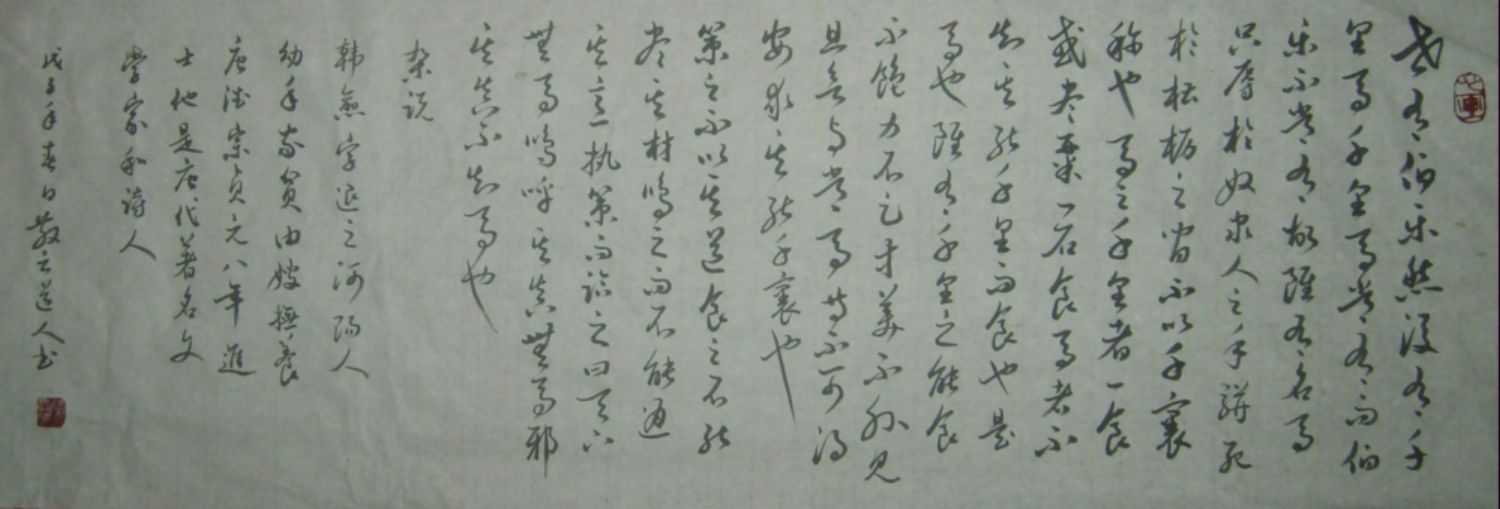 世有伯乐然后有千
里马千里马常有而伯
乐不常有故虽有名马
只辱於奴隶人之手骈死
於槽枥之间不以千裏
称也马之千里者一食
或尽粟一石食马者不
知其能千里而食也是
马也虽有千里之能食
不饱力不足才美不外见
且欲与常马等不可得
安求其能千裏也
策之不以其道食之不能
尽其材鸣之而不能通
其意执策而临之曰天下
無马鸣呼其真無马邪
其真不知马也
杂说
韩愈字退之河阳人
幼年家贫由嫂撫养
唐德宗贞元八年進
士他是唐代著名文
学家和诗人
戊子年春日散之道人书